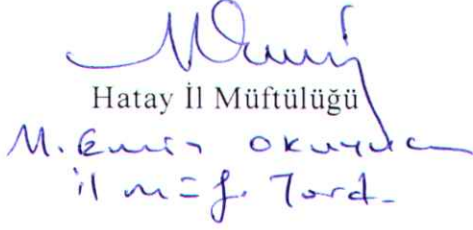 Hatay İl Müftülüğü
M. Emin Okuyucu
il müf. Yard.